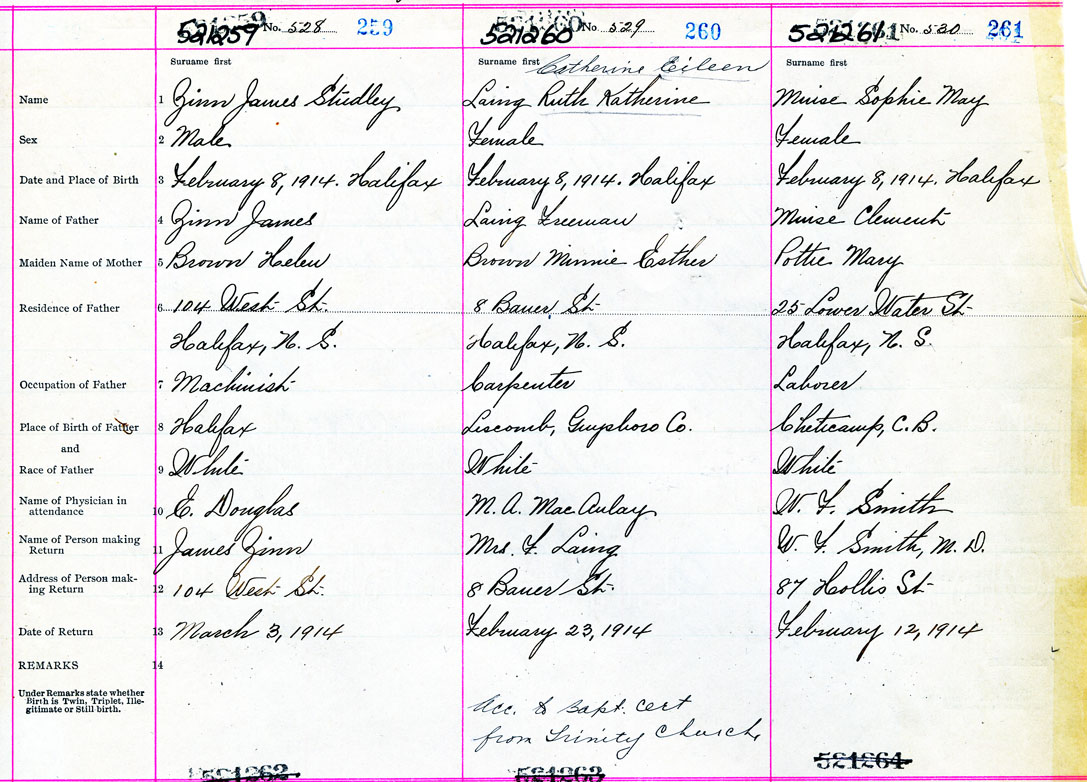 521259 No. 528 259 521260 No. 529 260 521261 No. 530 261
Surname first Surname first Catherine Eileen Surname first
Name 1 Zinn James Studley Laing Ruth Katherine Muise Sophie May
Sex 2 Male Female Female
Date and Place of Birth 3 February 8, 1914. Halifax February 8, 1914. Halifax February 8, 1914. Halifax
Name of Father 4 Zinn James Laing Freeman Muise Clement
Maiden Name of Mother 5 Brown Helen Brown Minnie Esther Pottie Mary
Residence of Father 6 104 West St. 8 Bauer St 25 Lower Water St
Halifax, N. S. Halifax, N. S. Halifax, N. S.
Occupation of Father 7 Machinist Carpenter Laborer
Place of Birth of Father 8 Halifax Liscomb, Guysboro Co. Cheticamp, C.B.
and
Race of Father 9 White White White
Name of Physician in
attendance 10 E. Douglas M. A. MacAulay W. F. Smith
Name of Person making
Return 11 James Zinn Mrs. F. Laing W. F. Smith, M. D.
Address of Person mak-
ing Return 12 104 West St. 8 Bauer St. 87 Hollis St
Date of Return 13 March 3, 1914 February 23, 1914 February 12, 1914
REMARKS 14
Under Remarks state whether
Birth is Twin, Triplet, Ille-
gitimate or Still-birth.
Acc. to Bapt. cert
from Trinity Church
521262 521263 521264